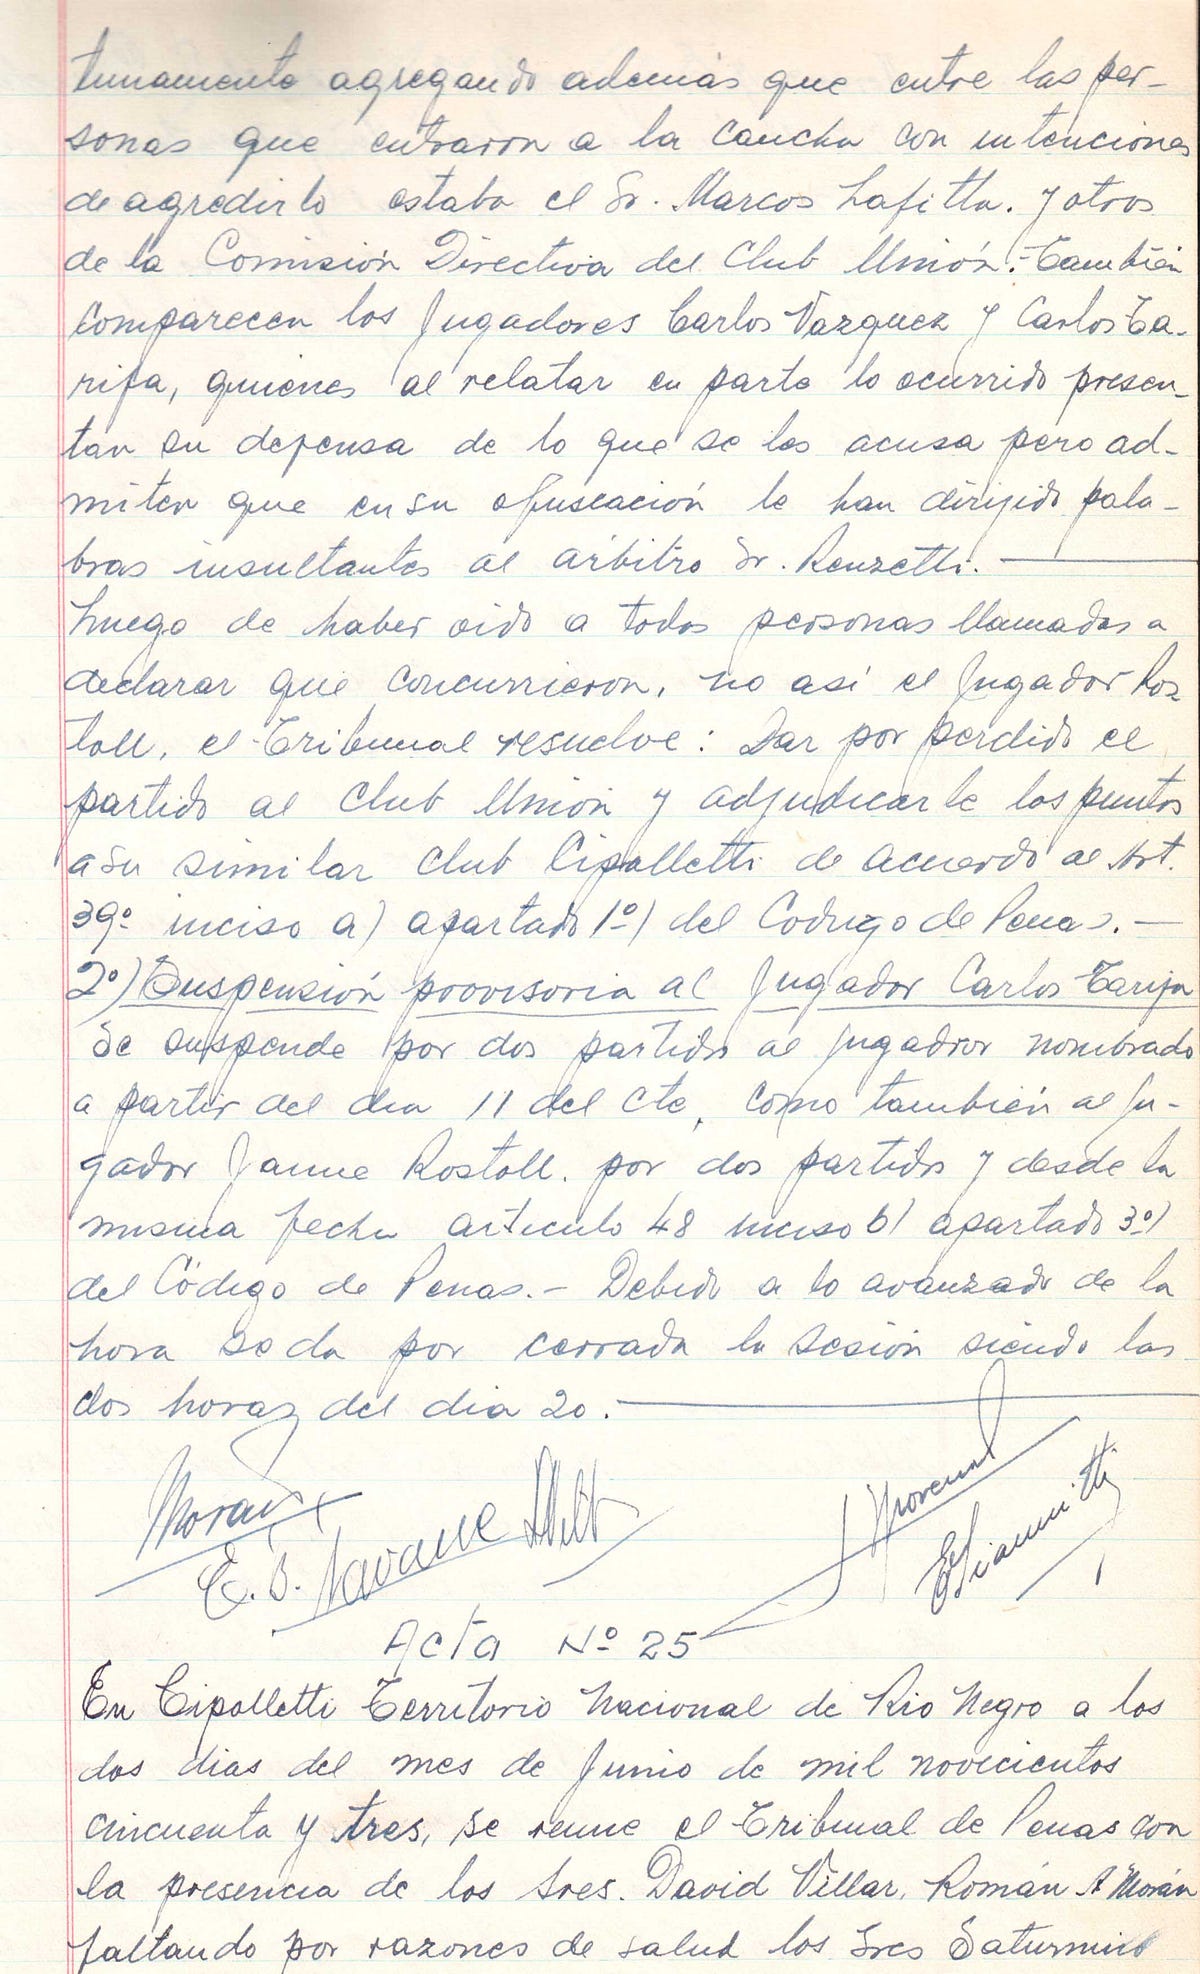 tunamente agregando además que entre las per-
sonas que entraron a la cancha con intenciones
de agredirlo estaba el Sr. Marcos Lafitta. y otros
de la Comisión Directiva del Club Unión.- También
comparecen los Jugadores Carlos Vazquez y Carlos Ta-
rifa, quienes al relatar en parte lo ocurrido presen-
tan su defensa de lo que se los acusa pero ad-
miten que en su ofuscación le han dirijido pala-
bras insultantes al arbitro Sr. Renzetti.
Luego de haber oido a todos personas llamadas a
declarar que concurrieron, no así el Jugador Ros
toll, el Tribunal resuelve: Dar por perdido el
partido al Club Unión y adjudicarle los puntos
a su similar Club Cipolletti de acuerdo al Art.
39º inciso a) apartado 1º) del Codigo de Penas.-
2º) Suspensión provisoria al Jugador Carlos Tarifa
Se suspende por dos partidos al jugador nombrado
a partir del dia 11 del cte, como también al Ju-
gador Jaime Rostoll. por dos partidos y desde la
misma fecha articulo 48 inciso b) apartado 3º)
del Código de Penas.- Debido a lo avanzado de la
hora se da por cerrada la sesión siendo las
dos horas del dia 20.
Acta Nº 25
En Cipolletti Territorio Nacional de Rio Negro a los
dos dias del mes de Junio de mil novecientos
cincuenta y tres, se reune el Tribunal de Penas con
la presencia de los Sres. David Villar, Román A Morán
faltando por razones de salud los Sres Saturnino